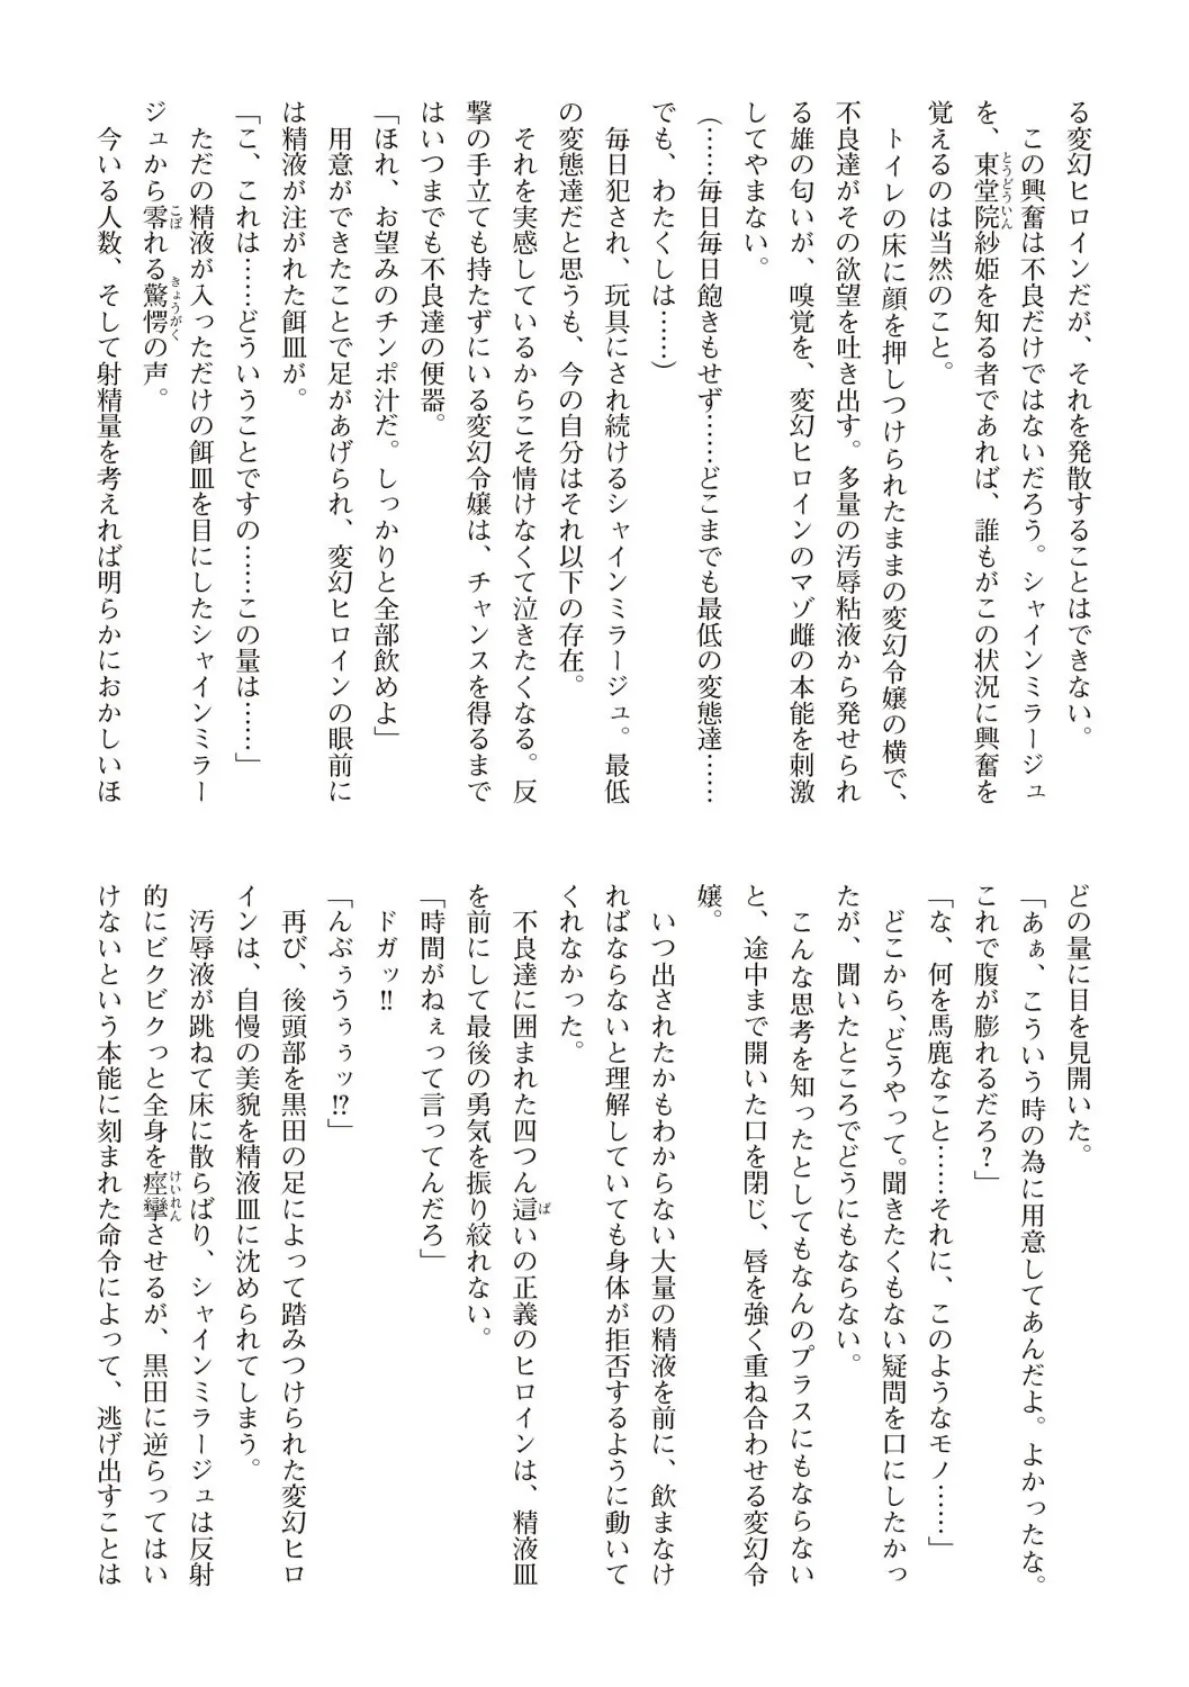 る変幻ヒロインだが、それを発散することはできない。
この興奮は不良だけではないだろう。シャインミラージュ
を、東堂院紗姫を知る者であれば、誰もがこの状況に興奮を
覚えるのは当然のこと。
トイレの床に顔を押しつけられたままの変幻令嬢の横で、
不良達がその欲望を吐き出す。多量の汚辱粘液から発せられ
る雄の匂いが、嗅覚を、変幻ヒロインのマゾ雌の本能を刺激
してやまない。
(……毎日毎日飽きもせず……どこまでも最低の変態達……
でも、わたくしは……)
毎日犯され、玩具にされ続けるシャインミラージュ。最低
の変態達だと思うも、今の自分はそれ以下の存在。
それを実感しているからこそ情けなくて泣きたくなる。反
撃の手立ても持たずにいる変幻令嬢は、チャンスを得るまで
はいつまでも不良達の便器。
「ほれ、お望みのチンポ汁だ。しっかりと全部飲めよ」
用意ができたことで足があげられ、変幻ヒロインの眼前に
は精液が注がれた餌皿が。
「こ、これは……どういうことですの……この量は……」
ただの精液が入っただけの餌皿を目にしたシャインミラー
ジュから零れる驚愕の声。
今いる人数、そして射精量を考えれば明らかにおかしいほ
どの量に目を見開いた。
「あぁ、こういう時の為に用意してあんだよ。よかったな。
これで腹が膨れるだろ?」
「な、何を馬鹿なこと……それに、このようなモノ……」
どこから、どうやって。聞きたくもない疑問を口にしたかっ
たが、聞いたところでどうにもならない。
こんな思考を知ったとしてもなんのプラスにもならない
と、途中まで開いた口を閉じ、唇を強く重ね合わせる変幻令
嬢。
いつ出されたかもわからない大量の精液を前に、飲まなけ
ればならないと理解していても身体が拒否するように動いて
くれなかった。
不良達に囲まれた四つん這いの正義のヒロインは、精液皿
を前にして最後の勇気を振り絞れない。
「時間がねぇって言ってんだろ」
ドガッ!!
「んぶぅうぅぅッ!?」
再び、後頭部を黒田の足によって踏みつけられた変幻ヒロ
インは、自慢の美貌を精液皿に沈められてしまう。
汚辱液が跳ねて床に散らばり、シャインミラージュは反射
的にビクビクっと全身を痙攣させるが、黒田に逆らってはい
けないという本能に刻まれた命令によって、逃げ出すことは